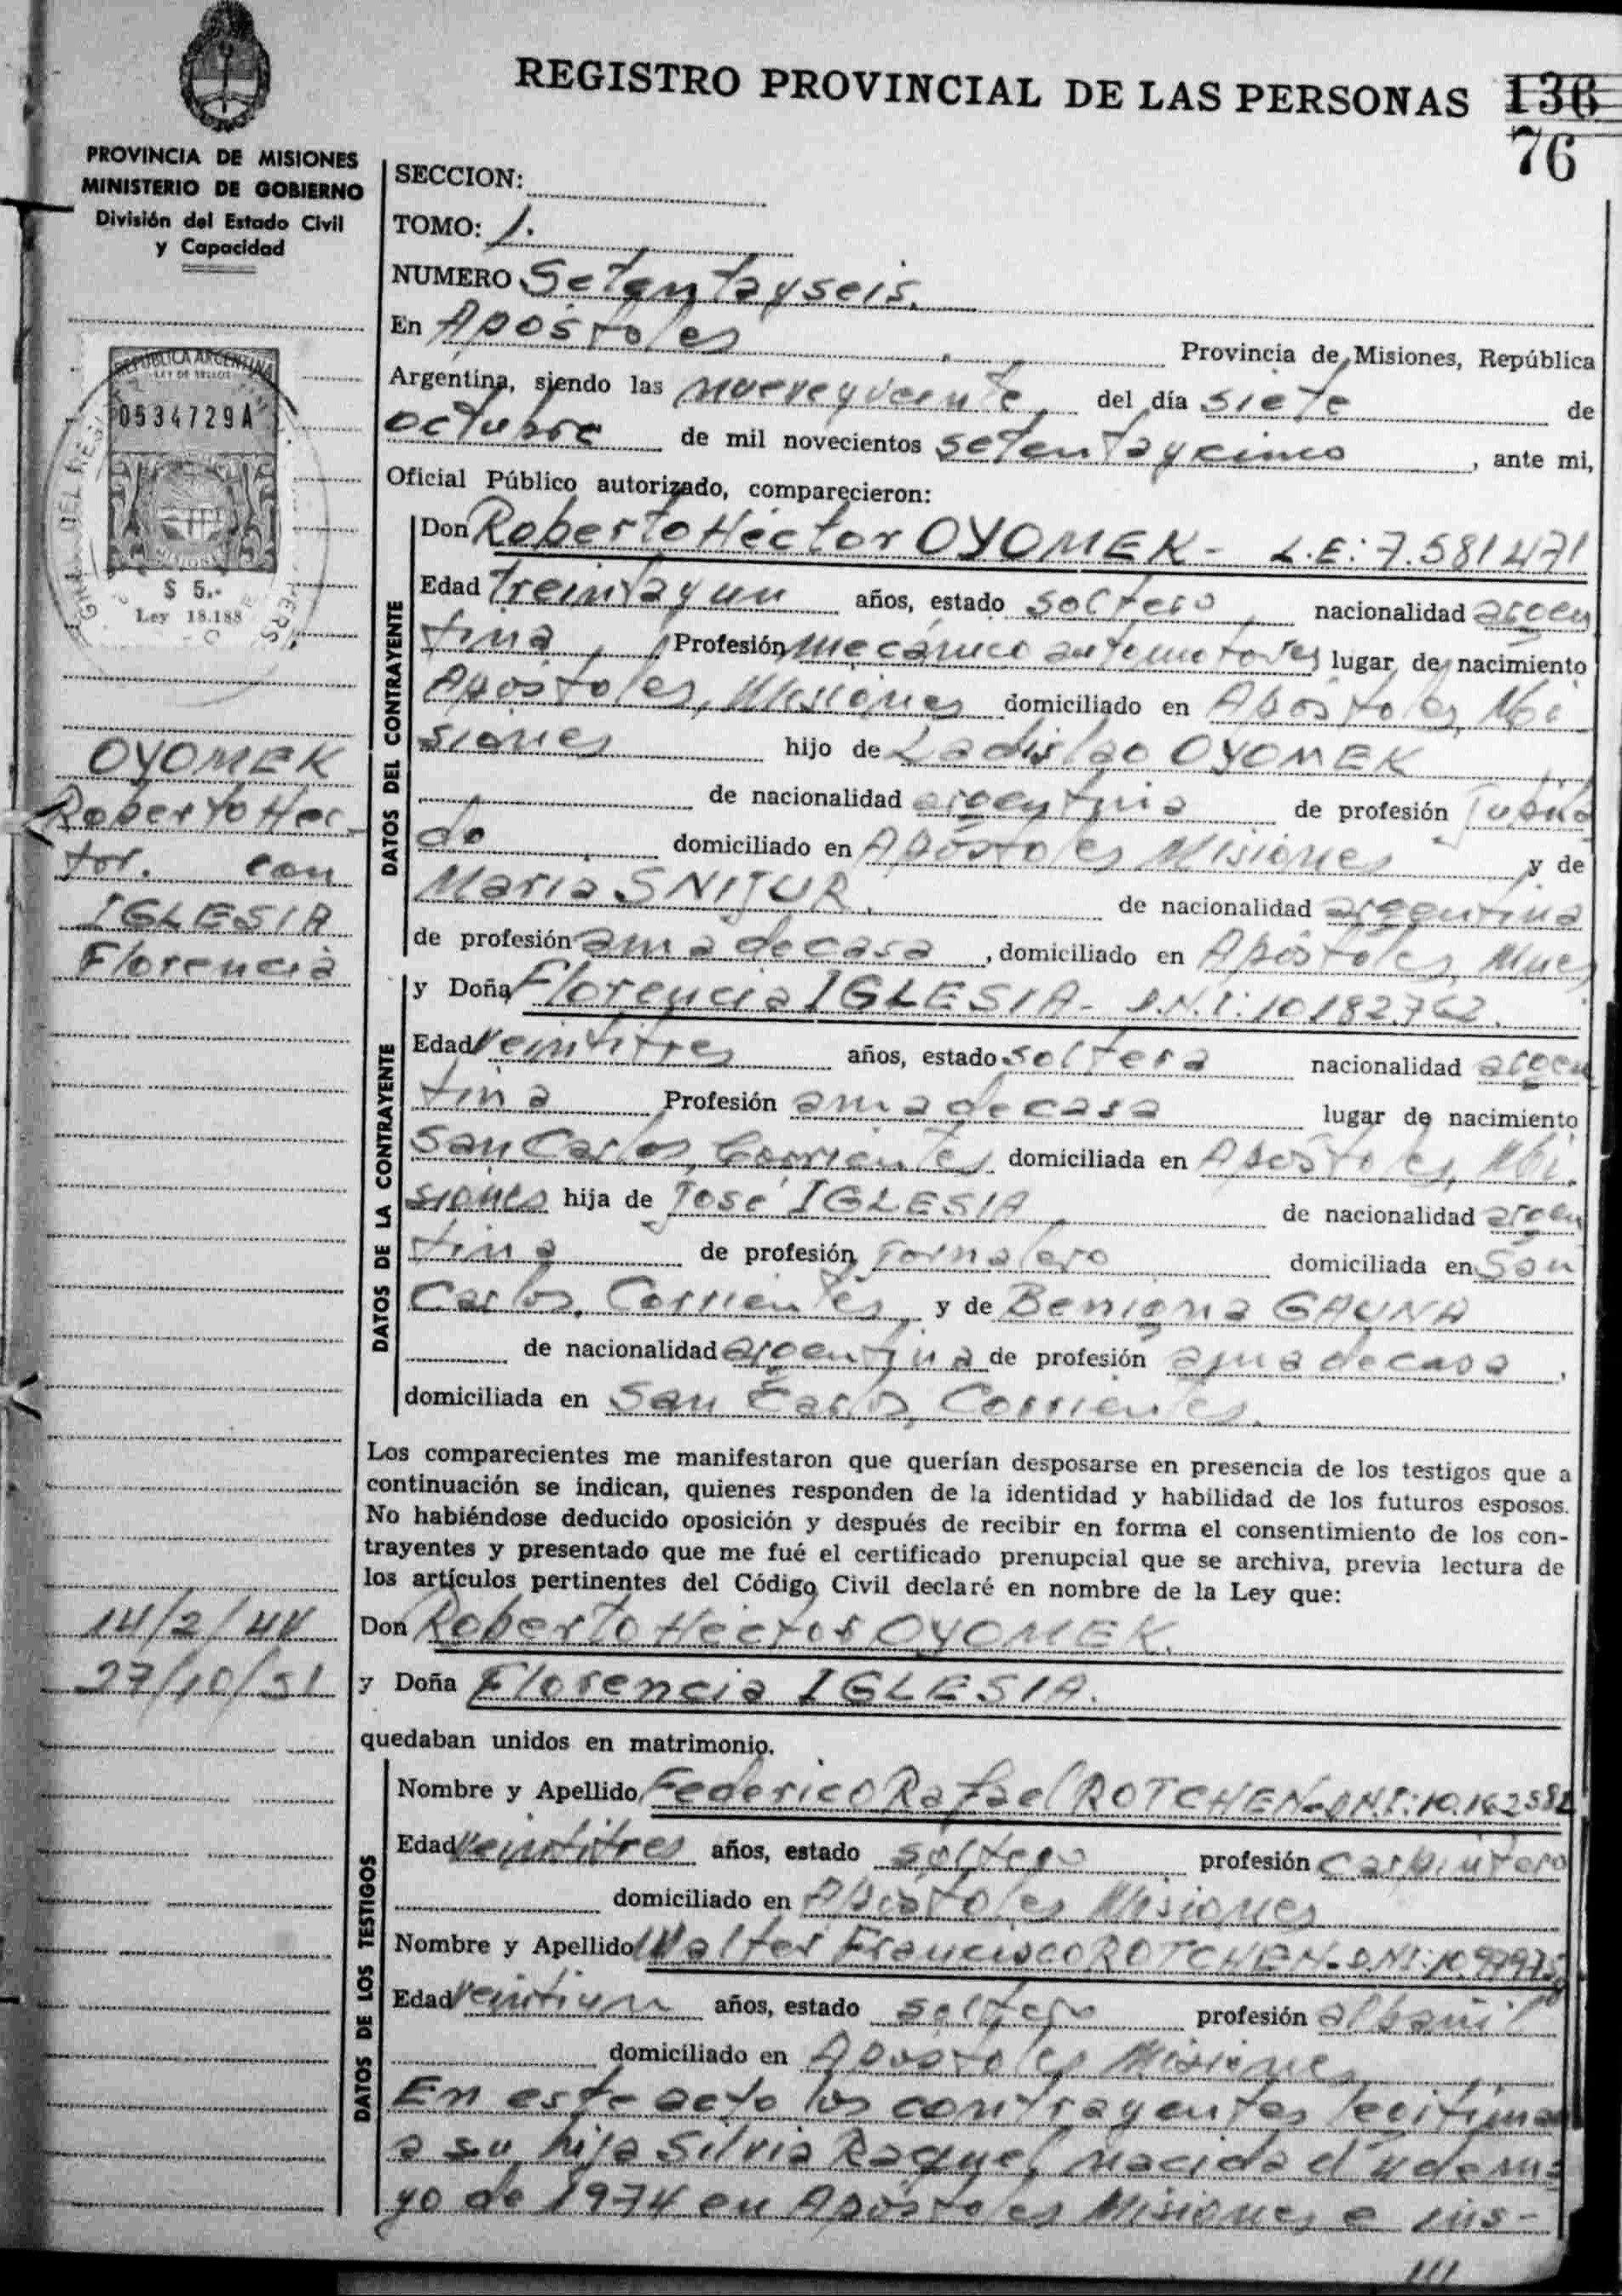 REGISTRO PROVINCIAL DE LAS PERSONAS 136
76
PROVINCIA DE MISIONES
MINISTERIO DE GOBIERNO
División del Estado Civil
y Capacidad
REPUBLICA ARGENTINA
LEY DE SELLOS
0534729A
MISIONES
$ 5.-
Ley 18.188
OYOMEK
Roberto Hec-
tor. con
IGLESIA
Florencia
14/2/44
27/10/51
SECCION:
TOMO: 1.
NUMERO Setenta y seis.
En Apóstoles Provincia de Misiones, República
Argentina, siendo las nueve y veinte del día siete de
octubre de mil novecientos setenta y cinco, ante mi,
Oficial Público autorizado, comparecieron:
DATOS DEL CONTRAYENTE
Don Roberto Héctor OYOMEK - L.E: 7.581471
Edad treinta y un años, estado soltero nacionalidad argen
tina, Profesión mecánico automotores lugar de nacimiento
Apóstoles, Misiones domiciliado en Apóstoles, Mi
siones hijo de Ladislao OYOMEK
de nacionalidad argentina de profesión jubila
do domiciliado en Apóstoles Misiones y de
Maria SNIJUR, de nacionalidad argentina
de profesión ama de casa, domiciliado en Apóstoles, Mnes
DATOS DE LA CONTRAYENTE
y Doña Florencia IGLESIA - D.N.I: 10.182.762.
Edad veintitres años, estado soltera nacionalidad argen
tina Profesión ama de casa lugar de nacimiento
San Carlos, Corrientes domiciliada en Apóstoles, Mi
siones hija de José IGLESIA de nacionalidad argen
tina de profesión jornalero domiciliada en San
Carlos, Corrientes y de Benigna GAUNA
de nacionalidad argentina de profesión ama de casa,
domiciliada en San Carlos, Corrientes.
Los comparecientes me manifestaron que querían desposarse en presencia de los testigos que a
continuación se indican, quienes responden de la identidad y habilidad de los futuros esposos.
No habiéndose deducido oposición y después de recibir en forma el consentimiento de los con-
trayentes y presentado que me fué el certificado prenupcial que se archiva, previa lectura de
los artículos pertinentes del Código Civil declaré en nombre de la Ley que:
Don Roberto Héctor OYOMEK.
y Doña Florencia IGLESIA.
quedaban unidos en matrimonio.
DATOS DE LOS TESTIGOS
Nombre y Apellido Federico Rafael ROTCHEN - D.N.I: 10.162582
Edad veintitres años, estado soltero profesión carpintero
domiciliado en Apóstoles Misiones
Nombre y Apellido Walter Francisco ROTCHEN - D.N.I:
Edad veintiun años, estado soltero profesión albañil
domiciliado en Apóstoles Misiones
En este acto los contrayentes legitiman
a su hija Silvia Raquel, nacida el 4 de ma
yo de 1974 en Apóstoles Misiones e ins-
///